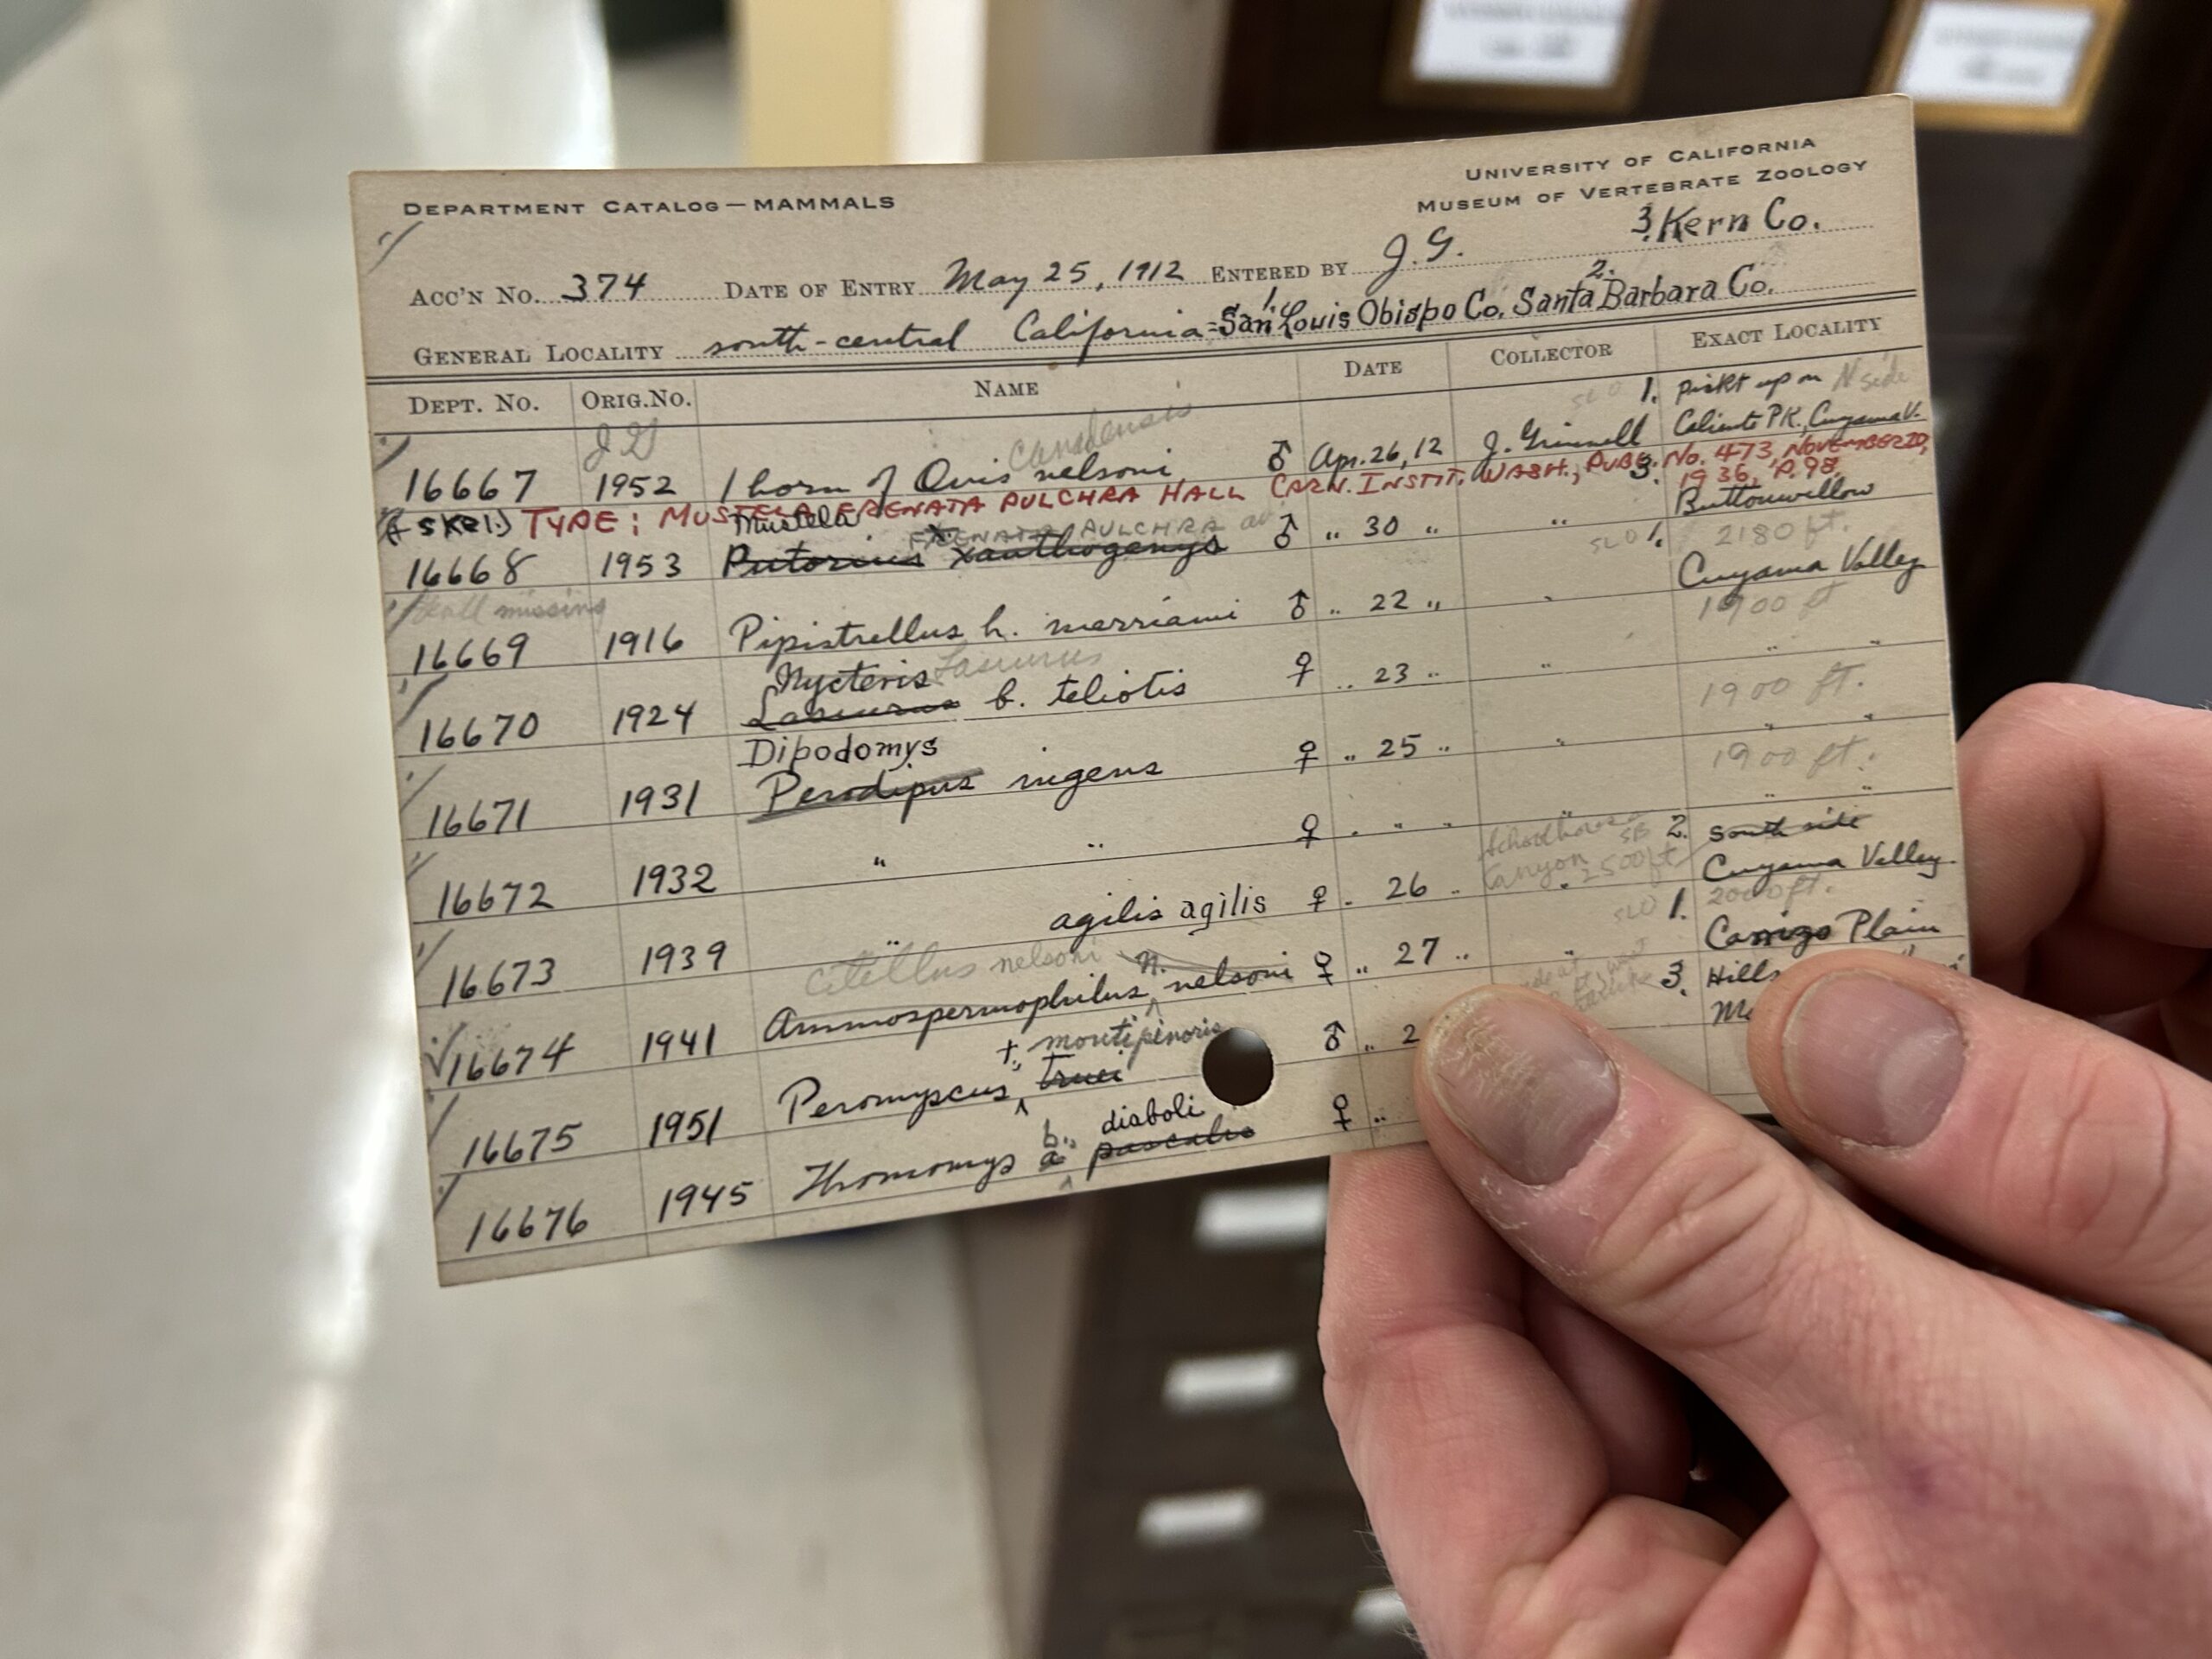 DEPARTMENT CATALOG—MAMMALS
UNIVERSITY OF CALIFORNIA
MUSEUM OF VERTEBRATE ZOOLOGY
3. Kern Co.
ACC'N NO. 374 DATE OF ENTRY May 25, 1912 ENTERED BY J. G.
1. 2.
GENERAL LOCALITY south-central California = San Louis Obispo Co. Santa Barbara Co.
DEPT. NO. ORIG. NO. NAME DATE COLLECTOR EXACT LOCALITY
JG canadensis SLO 1. pickt up on N side
16667 1952 1 horn of Ovis nelsoni ♂ Apr. 26, 12 J. Grinnell Caliente Pk., Cuyama V.
(+ skel.) TYPE: MUSTELA FRENATA PULCHRA HALL CARN. INSTIT. WASH., PUBL. No. 473, NOVEMBER 20, 1936, P. 98
Mustela FRENATA PULCHRA 3. Buttonwillow
16668 1953 Putorius xanthogenys ♂ " 30 " "
skull missing SLO 1. 2180 ft.
16669 1916 Pipistrellus h. merriami ♂ " 22 " " Cuyama Valley
Nycteris Lasiurus 1900 ft
16670 1924 Lasiurus b. teliotis ♀ " 23 " " " "
Dipodomys 1900 ft.
16671 1931 Perodipus ingens ♀ " 25 " " " "
1900 ft.
16672 1932 " " ♀ " " " " " "
Schoolhouse Canyon SB 2500 ft 2. south side
16673 1939 " agilis agilis ♀ " 26 " " Cuyama Valley
citellus nelsoni n. SLO 1. 2000 ft.
16674 1941 Ammospermophilus nelsoni ♀ " 27 " " Carrizo Plain
t. montipinoris 3. Hills
16675 1951 Peromyscus truei ♂ " 2
b. diaboli
16676 1945 Thomomys a. pascalis ♀ "